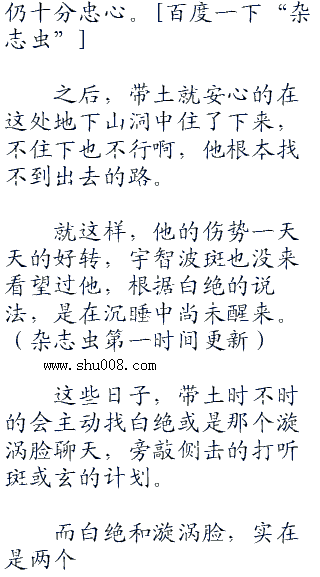 仍十分忠心。[百度一下“杂
志虫”]
之后，带土就安心的在
这处地下山洞中住了下来，
不住下也不行啊，他根本找
不到出去的路。
就这样，他的伤势一天
天的好转，宇智波斑也没来
看望过他，根据白绝的说
法，是在沉睡中尚未醒来。
（杂志虫第一时间更新）
www.shu008.com
这些日子，带土时不时
的会主动找白绝或是那个漩
涡脸聊天，旁敲侧击的打听
斑或玄的计划。
而白绝和漩涡脸，实在
是两个